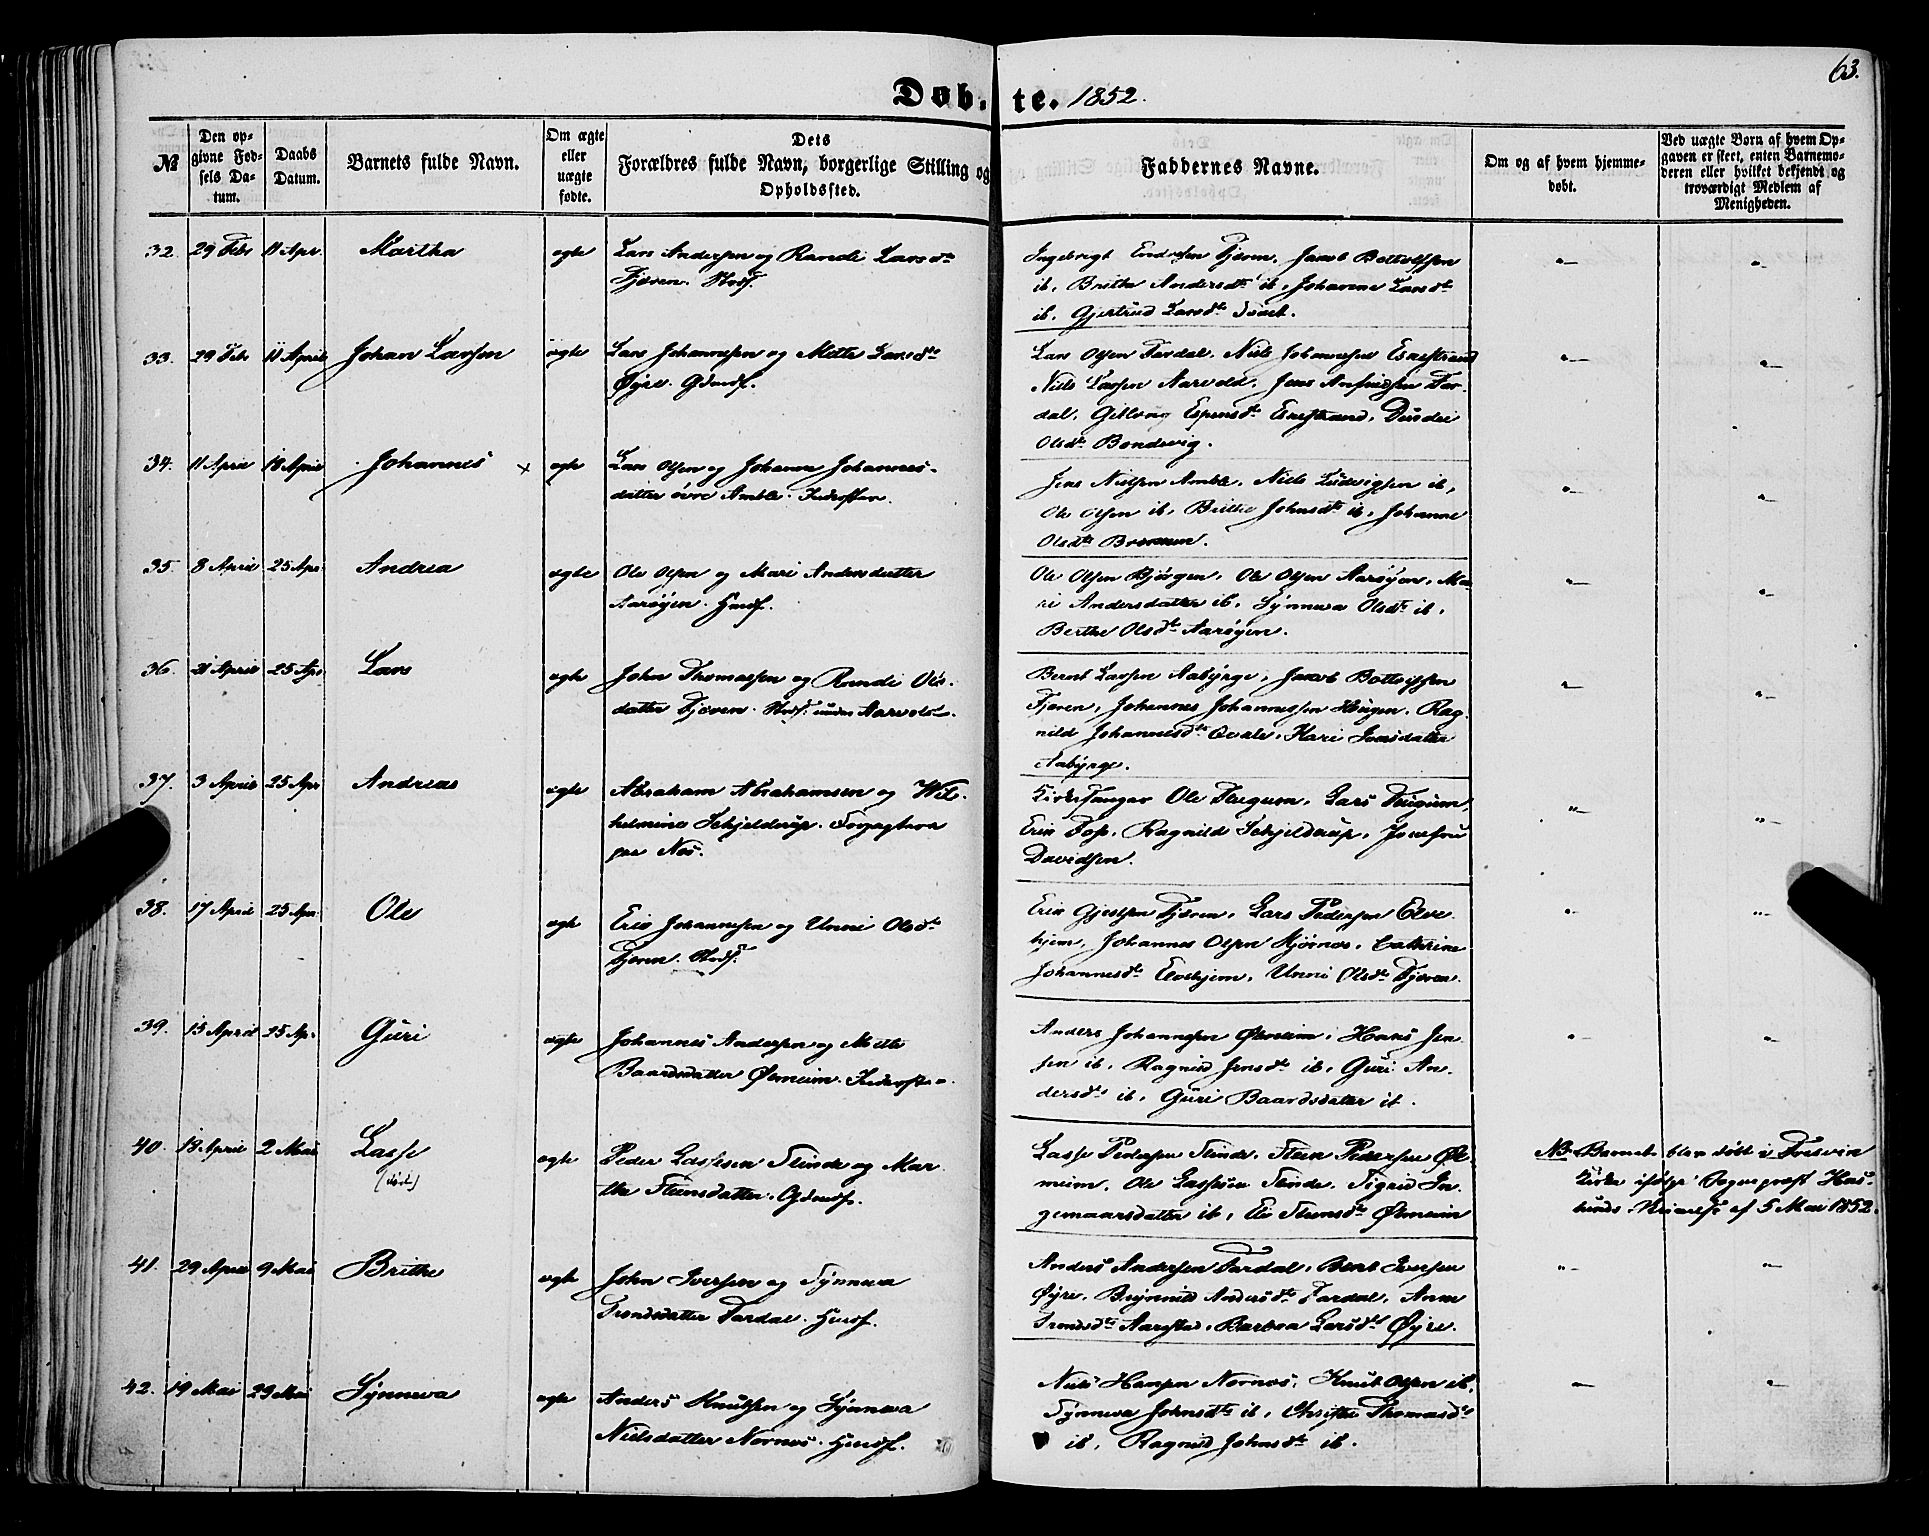 63.
Døb- te. 1852.
№
Den opgivne Fødsels Datum.
Daabs Datum.
Barnets fulde Navn.
Om ægte eller uægte fødte.
Dets Forældres fulde Navn, borgerlige Stilling og Opholdssted.
Faddernes Navne.
Om og af hvem hjemmedøbt.
Ved uægte Børn af hvem Opgaven er skeet, enten Barnemoderen eller hvilket bekjendt og troværdigt Medlem af Menigheden.
32. 29 Febr 11 Apr. Martha ægte
Lars Andersen og Randi Larsdtr
Fjæren. Hmdsf.
Ingebrigt Endresen Fjæren, Jacob Bottolfsen
ib, Brithe Andersdtr ib, Johanne Larsdtr
ib, Gjertrud Larsdtr
33. 29 Febr 11 April Johan Larsen ægte
Lars Johannesen og Mette Larsdtr
Øyre. Gdmdsf.
Lars Olsen Fardal, Niels Johannesen Esnestrand
Niels Larsen Aarvold, Jens Anfindsen Far-
dal, Gitlaug Espensdtr Esnestrand,
Olsdtr Bondevig.
34. 11 April 18 April Johannes x ægte
Lars Olsen og Johanne Johannes-
datter øvre Amble. Inderster.
Jens Nielsen Amble, Niels Ludvigsen ib,
Ole Olsen ib, Brithe Johnsdtr ib, Johanne
Olsdtr
35. 8 April 25 Apr Andrea ægte
Ole Olsen og Mari Andersdatter
Aarøyen. Hmdsf.
Ole Olsen Bjørgen, Ole Olsen Aarøyen, Ma-
ri Andersdatter ib, Synneva Olsdtr ib,
Berthe Olsdtr Aarøyen.
36. 21 April 25 Apr Lars ægte
John Thomassen og Randi Ols-
datter Fjæren. Hmdsf. under Aarvold.
Bernt Larsen Aabyrge, Jacob Bottolfsen
Fjæren, Johannes Johannessen Haugen, Rag-
nild Johannesdtr Qvale, Kari Ivarsdatter
Aabyrge.
37. 3 April 25 Apr Andreas ægte
Abraham Abrahamsen og Wil-
helmine Schjelderup. Forpagtere
paa Næs.
Kirkesanger Ole Flugum, Lars Flugum,
Erik Foss, Ragnild Schjelderup, Josefine
Davidsen.
38. 17 April 25 Apr. Ole ægte
Erik Johannesen og Unni Olsdtr
Fjæren. Hmdsf.
Erik Gjestsen Fjæren, Lars Pedersen Elve-
hjem, Johannes Olsen Hjørnes, Cathrine
Johannesdtr Elvehjem, Unni Olsdtr Fjæren.
39. 15 April 25 Apr. Guri ægte
Johannes Andersen og Mette
Baardsdatter Ølmeim. Inderster.
Anders Johannesen Ølmeim, Hans Jen-
sen ib, Ragnild Jensdtr ib, Guri An-
dersdtr ib, Guri Baardsdatter ib.
40. 18 April 2 Mai Lasse ægte
Peder Lassesen Slinde og Mar-
the Steensdatter. Gdmdsf.
Lasse Pedersen Slinde, Steen Pedersen Øl-
meim, Ole Lassesen Slinde, Sigrid In-
gemaarsdatter ib, Eli Steensdtr Ølmeim
NB. Barnet blev døbt i Fresvig
Kirke ifølge Sogneprest Has-
lunds af 5 Mai 1852.
41. 29 April 9 Mai Brithe ægte
John Iversen og Synneva
Trondsdatter Fardal. Hmdsf.
Anders Andersen Fardal, Bent Iversen
Øyre, Brynnild Andersdtr Fardal, Anne
Trondsdtr Aarestad, Barbra Larsdtr Øyre.
42. 19 Mai 23 Mai Synneva ægte
Anders Knutsen og Synneva
Nielsdatter Nornes. Hmdsf.
Niels Hansen Nornes, Knut Olsen ib,
Synneva Johnsdtr ib, Christie Thomasdtr
ib, Ragnild Johnsdtr ib.